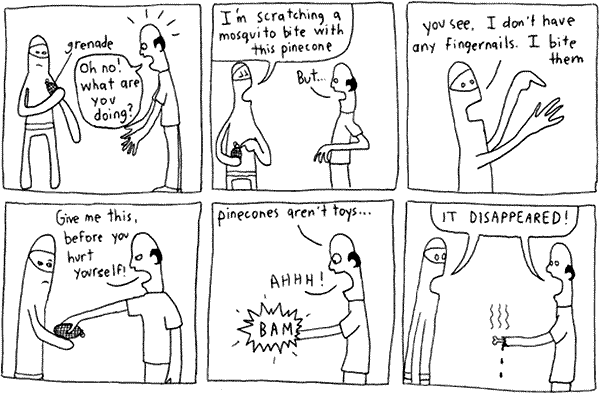 grenade
Oh no!
what are
you
doing?
I'm scratching a
mosquito bite with
this pinecone
But...
you see, I don't have
any fingernails. I bite
them
Give me this,
before you
hurt
yourself!
pinecones aren't toys...
AHHH!
BAM
IT DISAPPEARED!